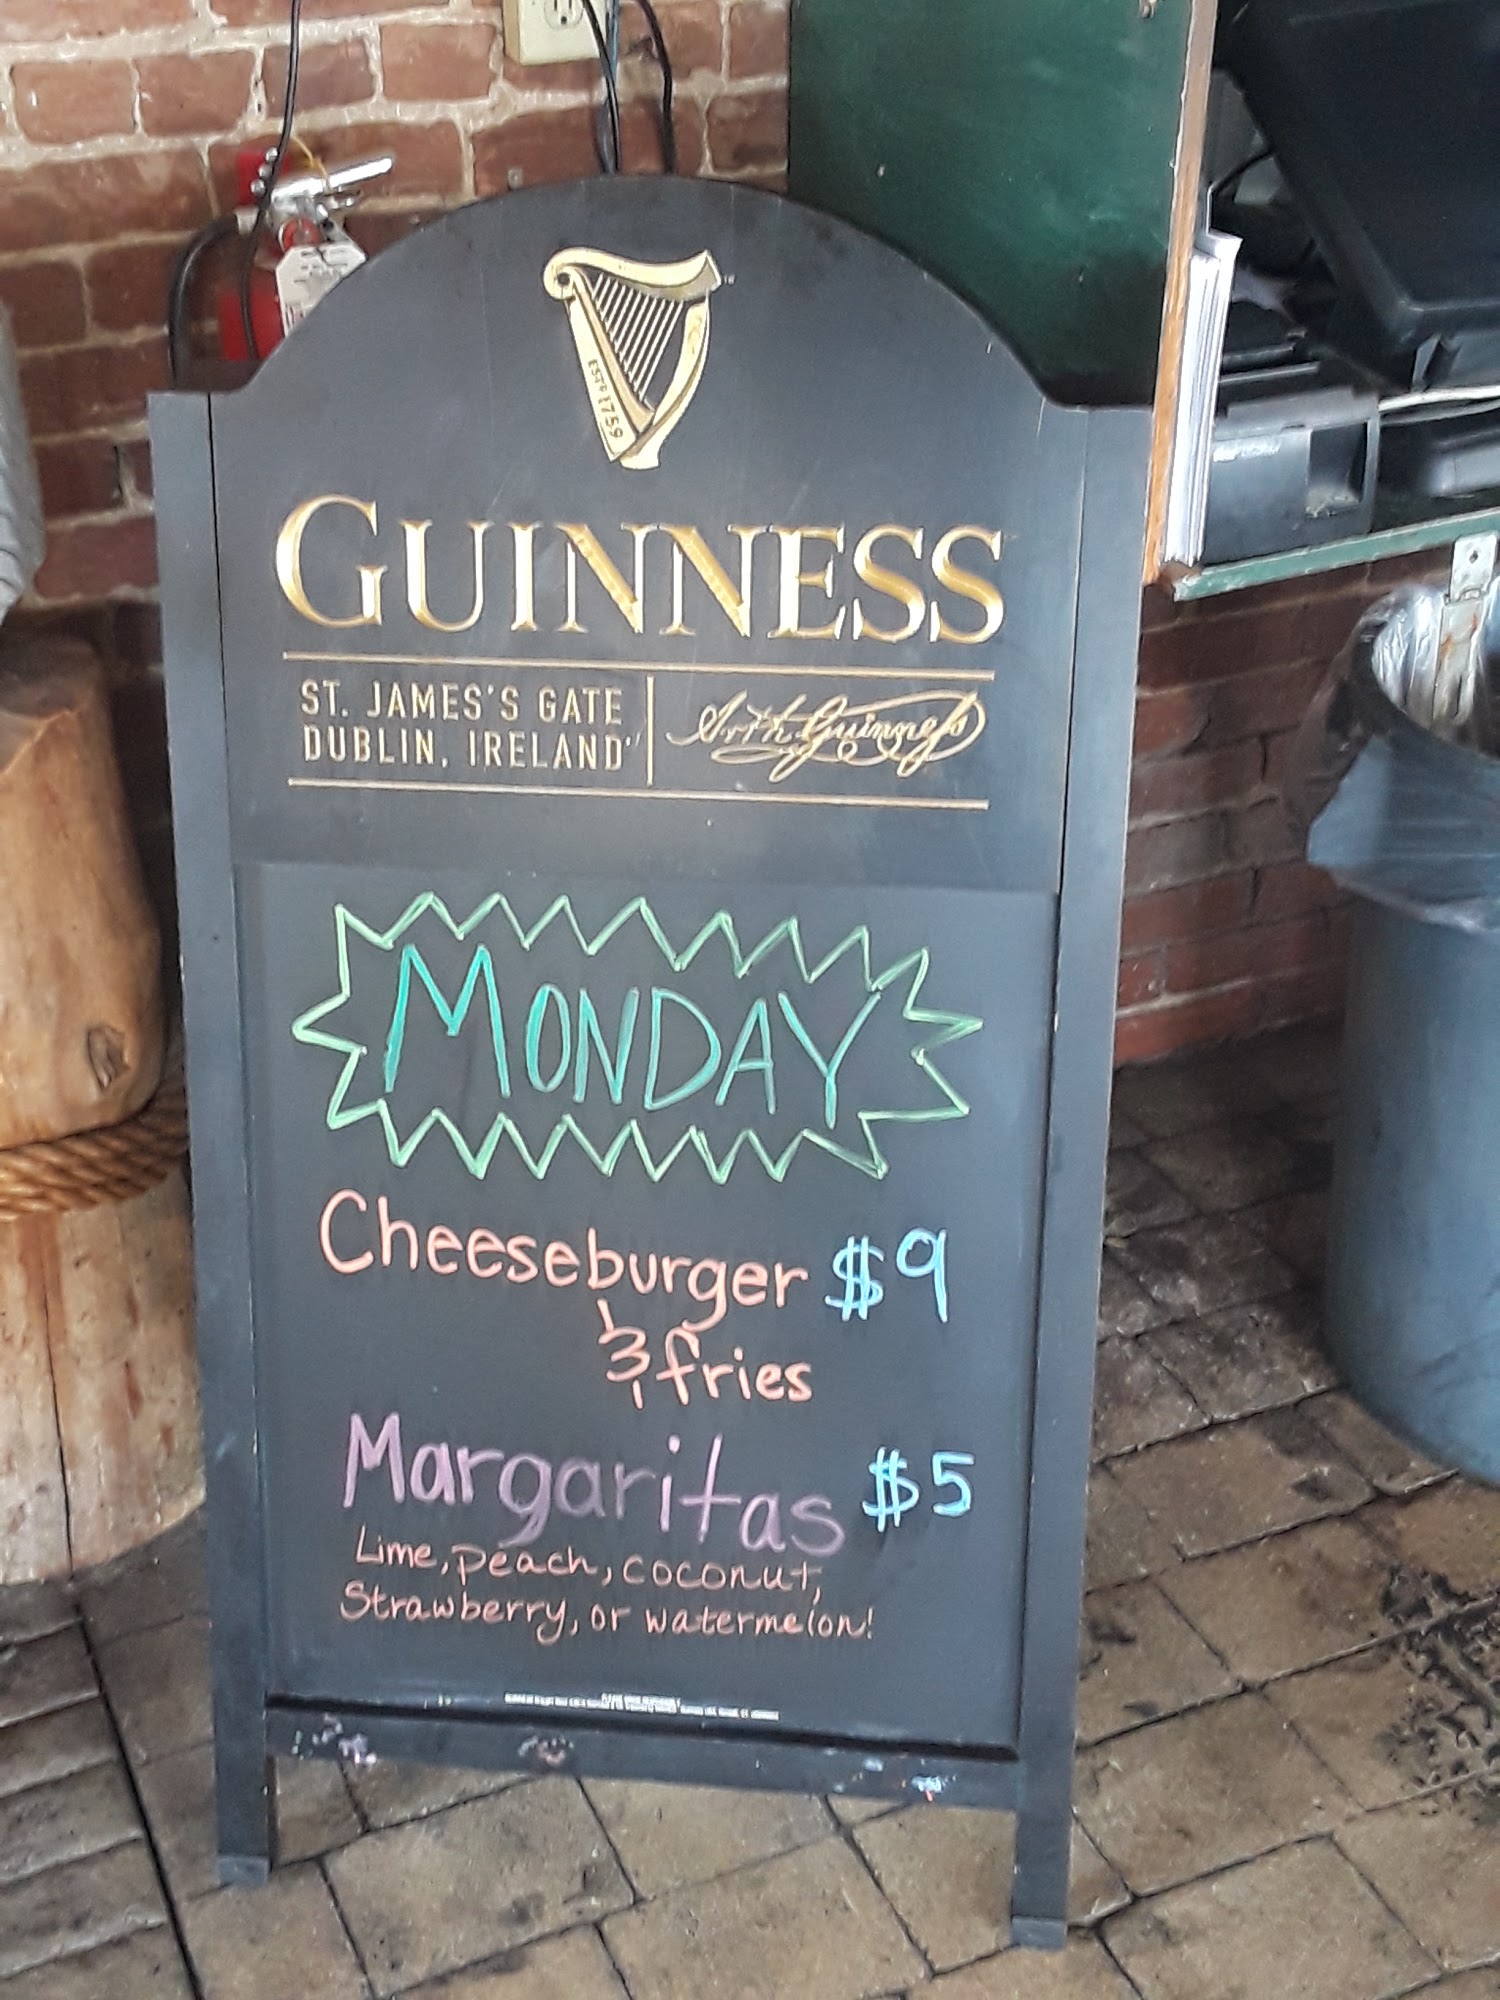 ESTD 1759
GUINNESS
ST. JAMES'S GATE
DUBLIN, IRELAND
Arth Guinness
MONDAY
Cheeseburger $9
& fries
Margaritas $5
Lime, peach, coconut,
Strawberry, or watermelon!